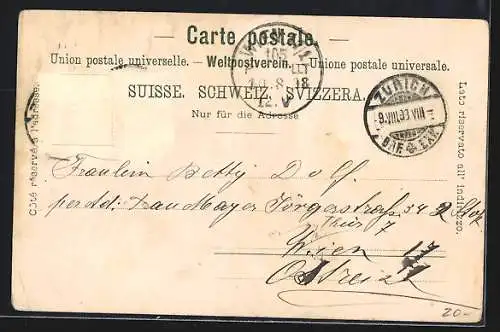 Carte postale.
Union postale universelle. — Weltpostverein. — Unione postale universale.
SUISSE. SCHWEIZ. SVIZZERA.
Nur für die Adresse
Côté réservé à l'adresse.
Lato riservato all' indirizzo.
WIEN
105
8 98
12.
ZÜRICH
9.VIII.98 VIII
BRF. EXP.
Fräulein Betty Dolf.
per Ad: Frau Mayer Jörgerstraße 34 2 Stok
Thür 7
Wien 17
Östreich
20-